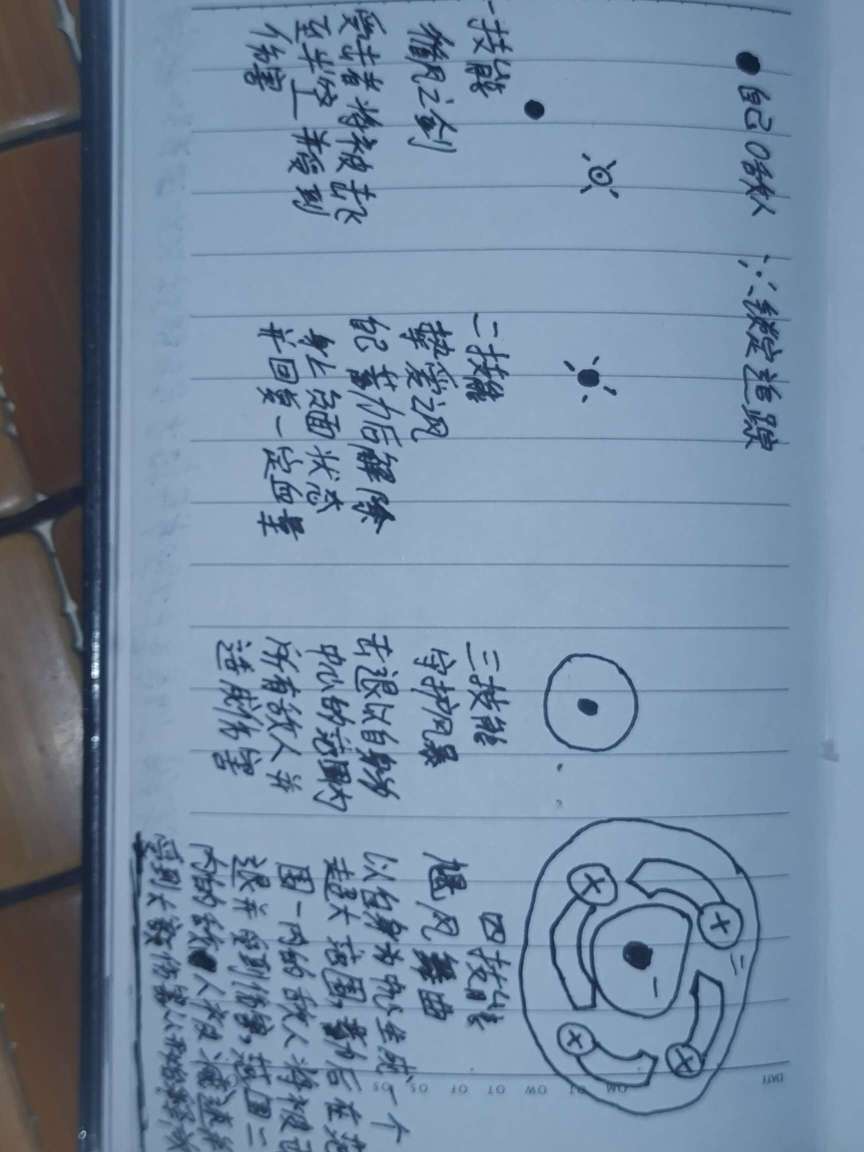 ●自己 ○敌人 锁定追踪
一技能
风之剑
受击者将被击飞
至半空 并受到
伤害
二技能
挚爱之风
自己蓄力后解除
身上负面状态
并回复一定血量
三技能
守护风暴
击退以自身为
中心的范围内
所有敌人并
造成伤害
一
二
四技能
飓风舞曲
以自身为中心生成一个
超大范围,蓄力后在范
围一内的敌人将被击
退并受到伤害,范围二
内的敌人减速并
受到大额伤害
DATE